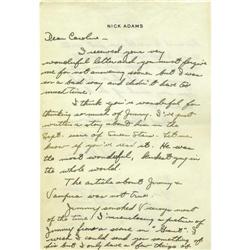 NICK ADAMS
Dear Caroline —
I received your very
wonderful letter and you must forgive
me for not answering sooner but I was
in a bad way and didn't have too
much time.
I think you're wonderful for
thinking so much of Jimmy. I've just
written a story about him in the
Sept. issue of Screen Stars. Let me
know if you've read it. He was
the most wonderful, guy
in the whole world.
The article about Jimmy &
Vampira was not true.
Jimmy smoked Viceroy most
of the time. I'm enclosing a picture of
Jimmy from a scene in "Giant". I
wish I could send you something of
his but I only have a few things of